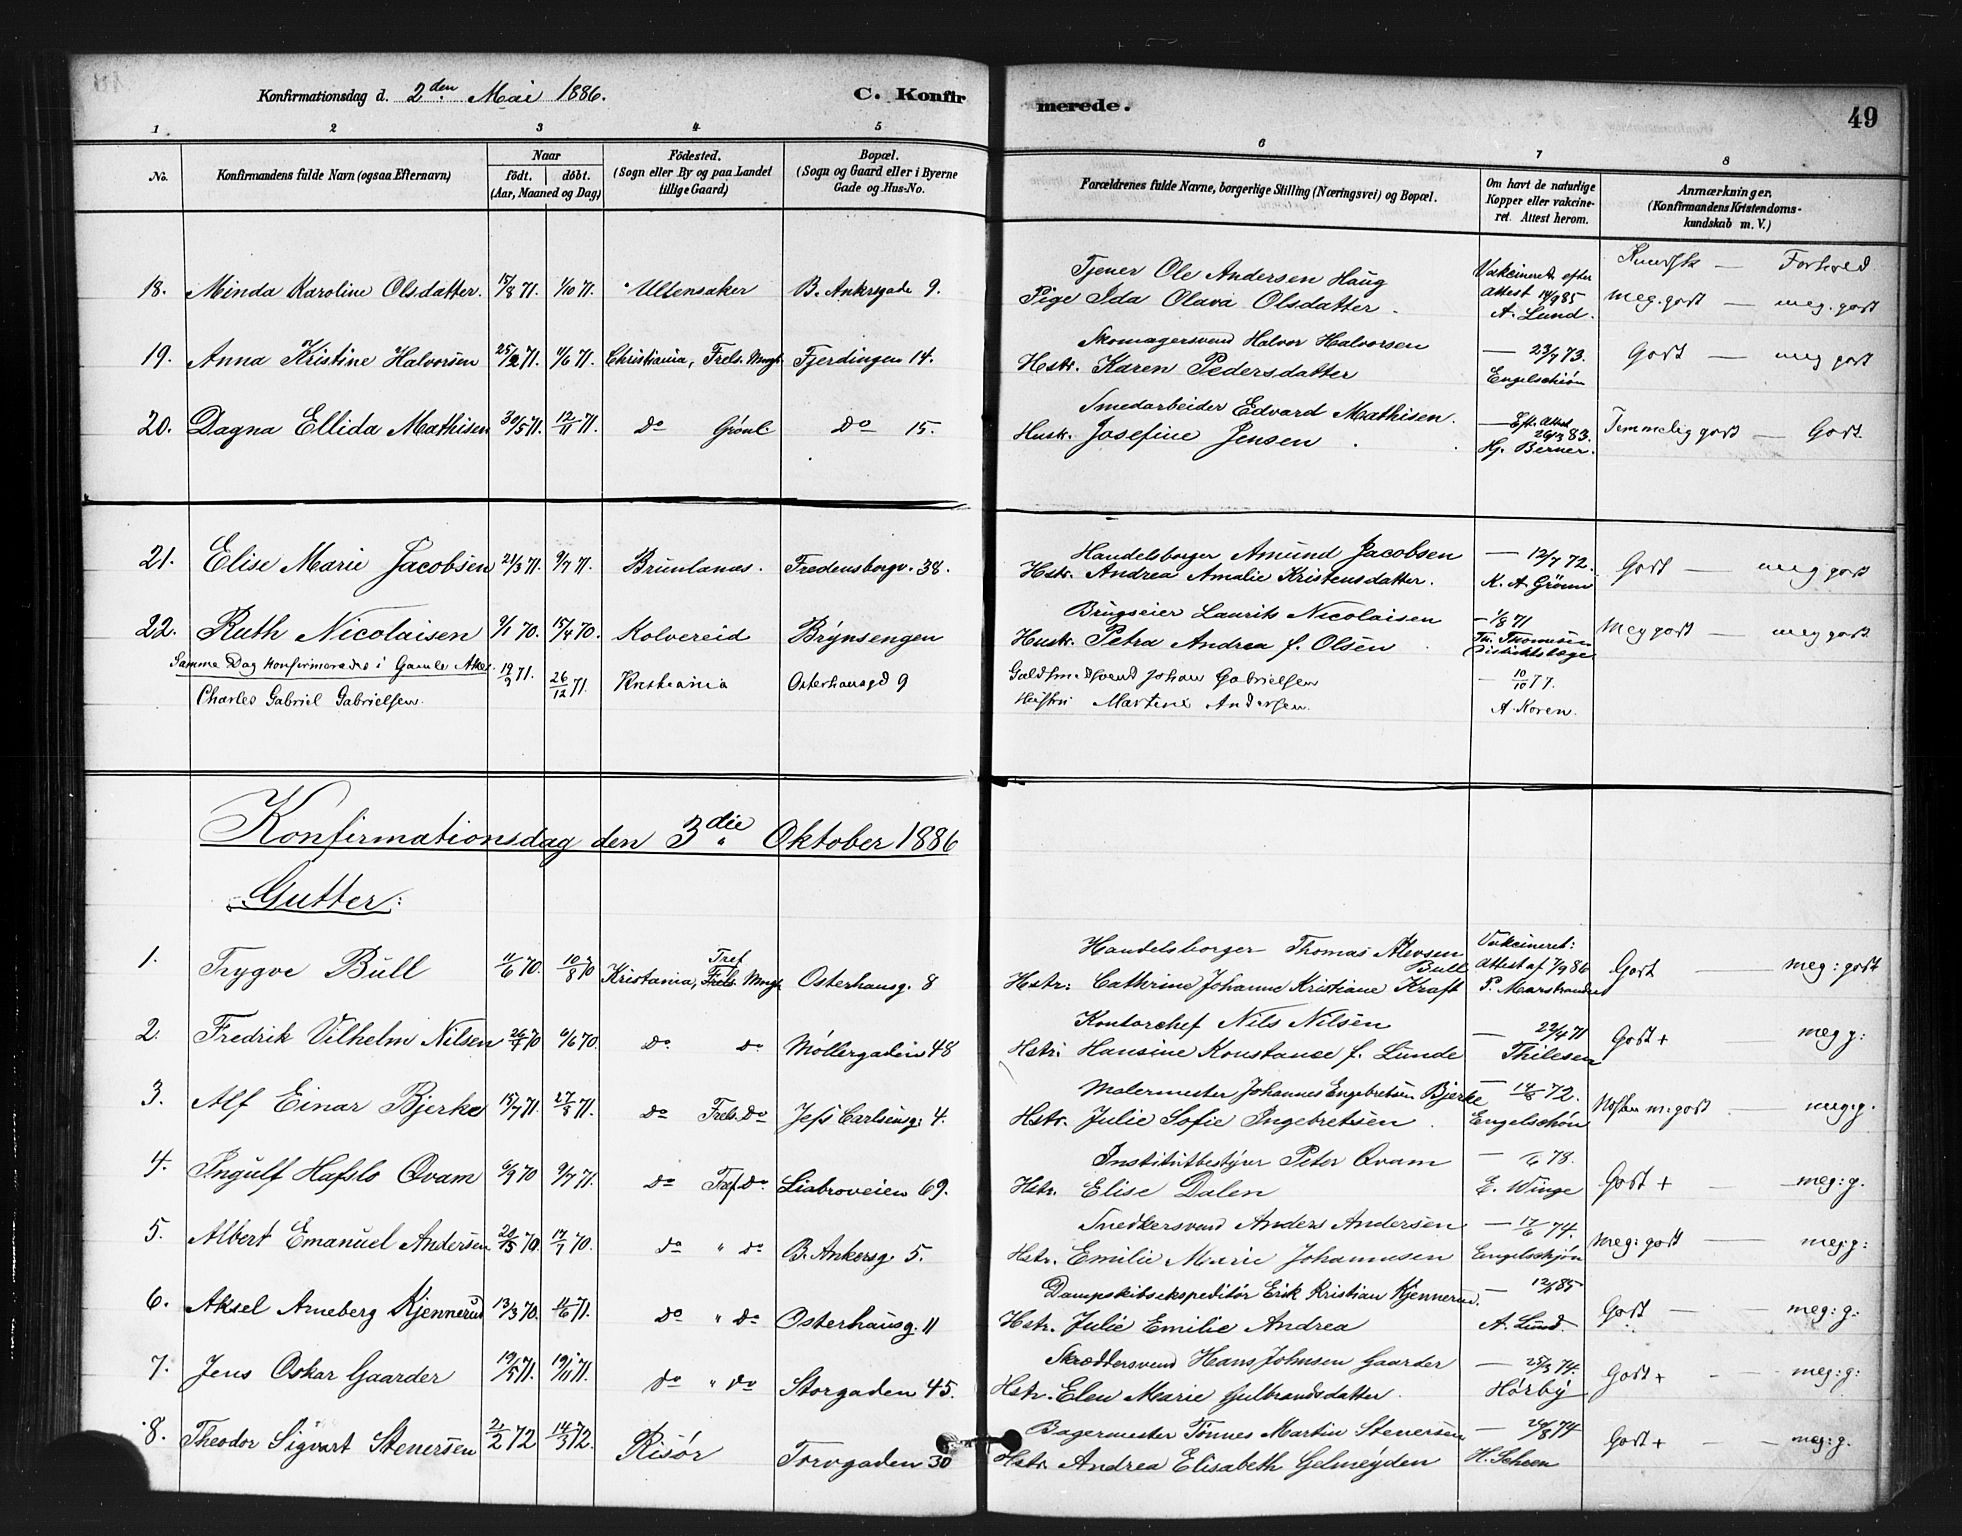 Konfirmationsdag d. 2den Mai 1886.
C. Konfirmerede.
49
1 2 3 4 5 6 7 8
No.
Konfirmandens fulde Navn (ogsaa Efternavn)
Naar
født. døbt.
(Aar, Maaned og Dag)
Fødested.
(Sogn eller By og paa Landet
tillige Gaard)
Bopæl.
(Sogn og Gaard eller i Byerne
Gade og Hus-No.
Forældrenes fulde Navne, borgerlige Stilling (Næringsvei) og Bopæl.
Om havt de naturlige
Kopper eller vakcine-
ret. Attest herom.
Anmærkninger.
(Konfirmandens Kristendoms-
kundskab m. V.)
Kundsk — Forhold
18. Minda Karoline Olsdatter. 15/8 71. 1/10 71. Ullensaker B. Ankersgade 9.
Tjener Ole Andersen Haug
Pige Ida Olava Olsdatter.
Vakcineret efter
Attest 14/9 85
A. Lund.
meg. godt — meg. godt
19. Anna Kristine Halvorsen 25/2 71. 11/6 71. Christiania, Frels. Mngh. Fjerdingen 14.
Skomagersvend Halvor Halvorsen
Hstr. Karen Pedersdatter
— 23/7 73.
Engelschiøn
Godt — meg godt
20. Dagna Ellida Mathisen 30/5 71. 12/11 71. Do Grønl. Do 15.
Smedarbeider Edvard Mathisen.
Husk. Josefine Jensen
— Eft. Attest
26/3 83.
Hj. Berner.
Temmelig godt — Godt
21. Elise Marie Jacobsen 21/3 71. 9/7 71. Brunlanæs. Fredensborgv. 38.
Handelsborger Amund Jacobsen
Hstr. Andrea Amalie Kristensdatter.
— 12/7 72.
K. A. Grønn
Godt — meg godt
22. Ruth Nicolaisen 9/1 70. 15/4 70. Kolvereid Brynsengen
Brugseier Laurits Nicolaisen
Hustr. Petra Andrea f. Olsen
— 1/8 71
Th. Thomesen
Distriktslæge
Meg godt — meg godt
Samme Dag konfirmeredes i Gamle Aker
Charles Gabriel Gabrielsen. 12/9 71. 26/12 71. Kristiania Osterhausgd 9
Guldsmedsvend Johan Gabrielsen
Hustru Martine Andersen.
— 10/10 77.
A. Koren.
Konfirmationsdag den 3die Oktober 1886
Gutter:
1. Trygve Bull 11/6 70. 10/8 70 Kristiania, Tref. Mngh. Osterhausg. 8
Handelsborger Thomas Alevsen Bull
Hstr: Cathrine Johanne Kristiane Kraft
Vakcineret:
Attest af 7/9 86
P. Marstrander
Godt — meg: godt
2. Fredrik Vilhelm Nilsen 26/1 70 6/6 70. Do Do Møllergaden 48
Kontorchef Nils Nilsen
Hstr: Hansine Konstance f. Lunde
— 29/4 71
Thilesen
Godt + meg g:
3. Alf Einar Bjerke 15/7 71. 27/8 71. Do Frels. Do Jess Carlsensg: 4.
Malermester Johannes Engebretsen Bjerke
Hstr. Julie Sofie Ingebretsen
— 14/8 72.
Engelschøn
Næsten m: godt — meg: g.
4. Ingulf Hafslo Qvam 6/9 70 9/7 71. Do Tref. Do Liabroveien 69.
Institutbestyrer Peter Qvam
Hstr. Elise Dalen
— 78.
E. Winge
Godt + — meg: g.
5. Albert Emanuel Andersen 70. 17/7 70. Do " Do B. Ankersg 5.
Snedkersvend Anders Andersen
Hstr. Emilie Marie Johannesen
— 17/6 74.
Engelschjøn
meg: godt — meg: g:
6. Aksel Arneberg Kjennerud 13/3 70. 11/6 71. Do " Do Osterhausg. 11
Dampskibsekspeditør Erik Kristian Kjennerud.
Hstr. Julie Emilie Andrea
— 12/1 85
A. Lund.
Godt — meg: g:
7. Jens Oskar Gaarder 19/5 71. 19/11 71. Do " Do Storgaden 45.
Skræddersvend Hans Johnsen Gaarder
Hstr. Elen Marie Gulbrandsdatter.
— 25/3 74.
Hørby
Godt + — meg: g:
8. Theodor Sigvart Stenersen 2/2 72 14/3 72. Risør Torvgaden 30
Bagermester Tønnes Martin Stenersen
Hstr. Andrea Elisabeth Gelmeyden
— 24/8 74
H. Scheen
Godt + — meg: g.